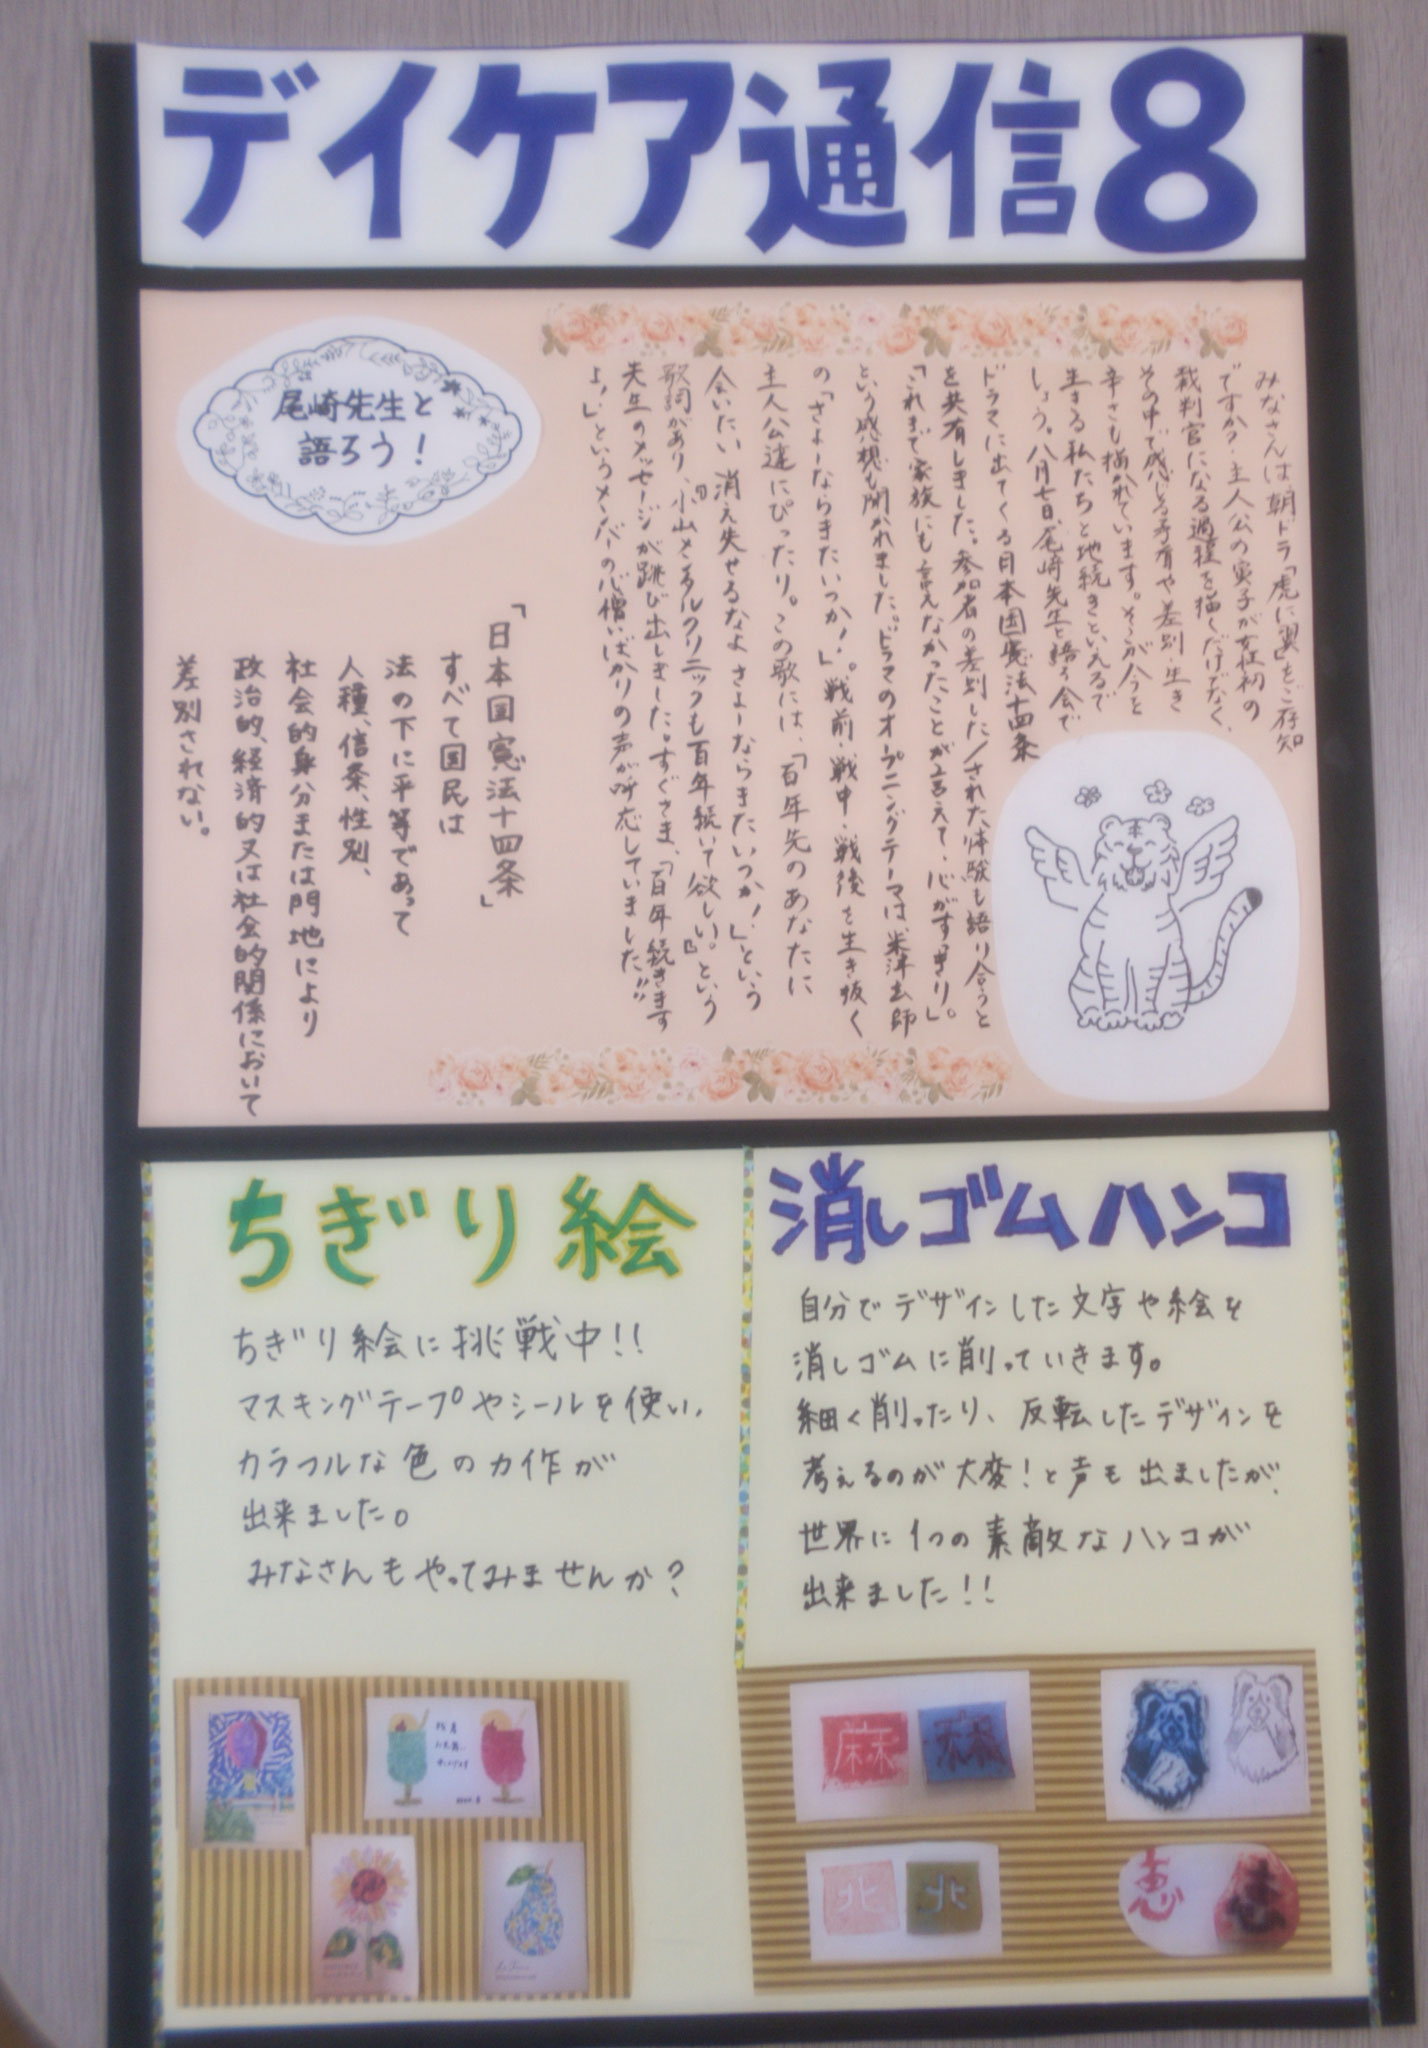 デイケア通信8
尾崎先生と
語ろう！
みなさんは、朝ドラ「虎に翼」をご存知
ですか？主人公の寅子が女性初の
裁判官になる過程を描くだけでなく、
その中で感じる矛盾や差別・生き
辛さも描かれています。そこが今を
生きる私たちと地続きといえるで
しょう。八月七日、尾崎先生と語る会で
ドラマに出てくる日本国憲法十四条
を共有しました。参加者の差別した/された体験も語り合うと
「これまで家族にも言えなかったことが言えて、心がすっきり」。
という感想も聞かれました。ドラマのオープニングテーマは、米津玄師
の「さよーならまたいつか！」。戦前・戦中・戦後を生き抜く
主人公達にぴったり。この歌には、「百年先のあなたに
会いたい 消え失せるなよ さよーならまたいつか！」という
歌詞があり、小山さんの『クリニックも百年続いて欲しい。』という
先生のメッセージが跳び出しました。すぐさま、「百年続きます
よ！」というメンバーの心憎いばかりの声が呼応していました!!
「日本国憲法十四条」
すべて国民は
法の下に平等であって
人種、信条、性別、
社会的身分または門地により
政治的、経済的又は社会的関係において
差別されない。
ちぎり絵
ちぎり絵に挑戦中!!
マスキングテープやシールを使い、
カラフルな色の力作が
出来ました。
みなさんもやってみませんか？
消しゴムハンコ
自分でデザインした文字や絵を
消しゴムに削っていきます。
細く削ったり、反転したデザインを
考えるのが大変！と声も出ましたが、
世界に1つの素敵なハンコが
出来ました!!
麻
北
恵